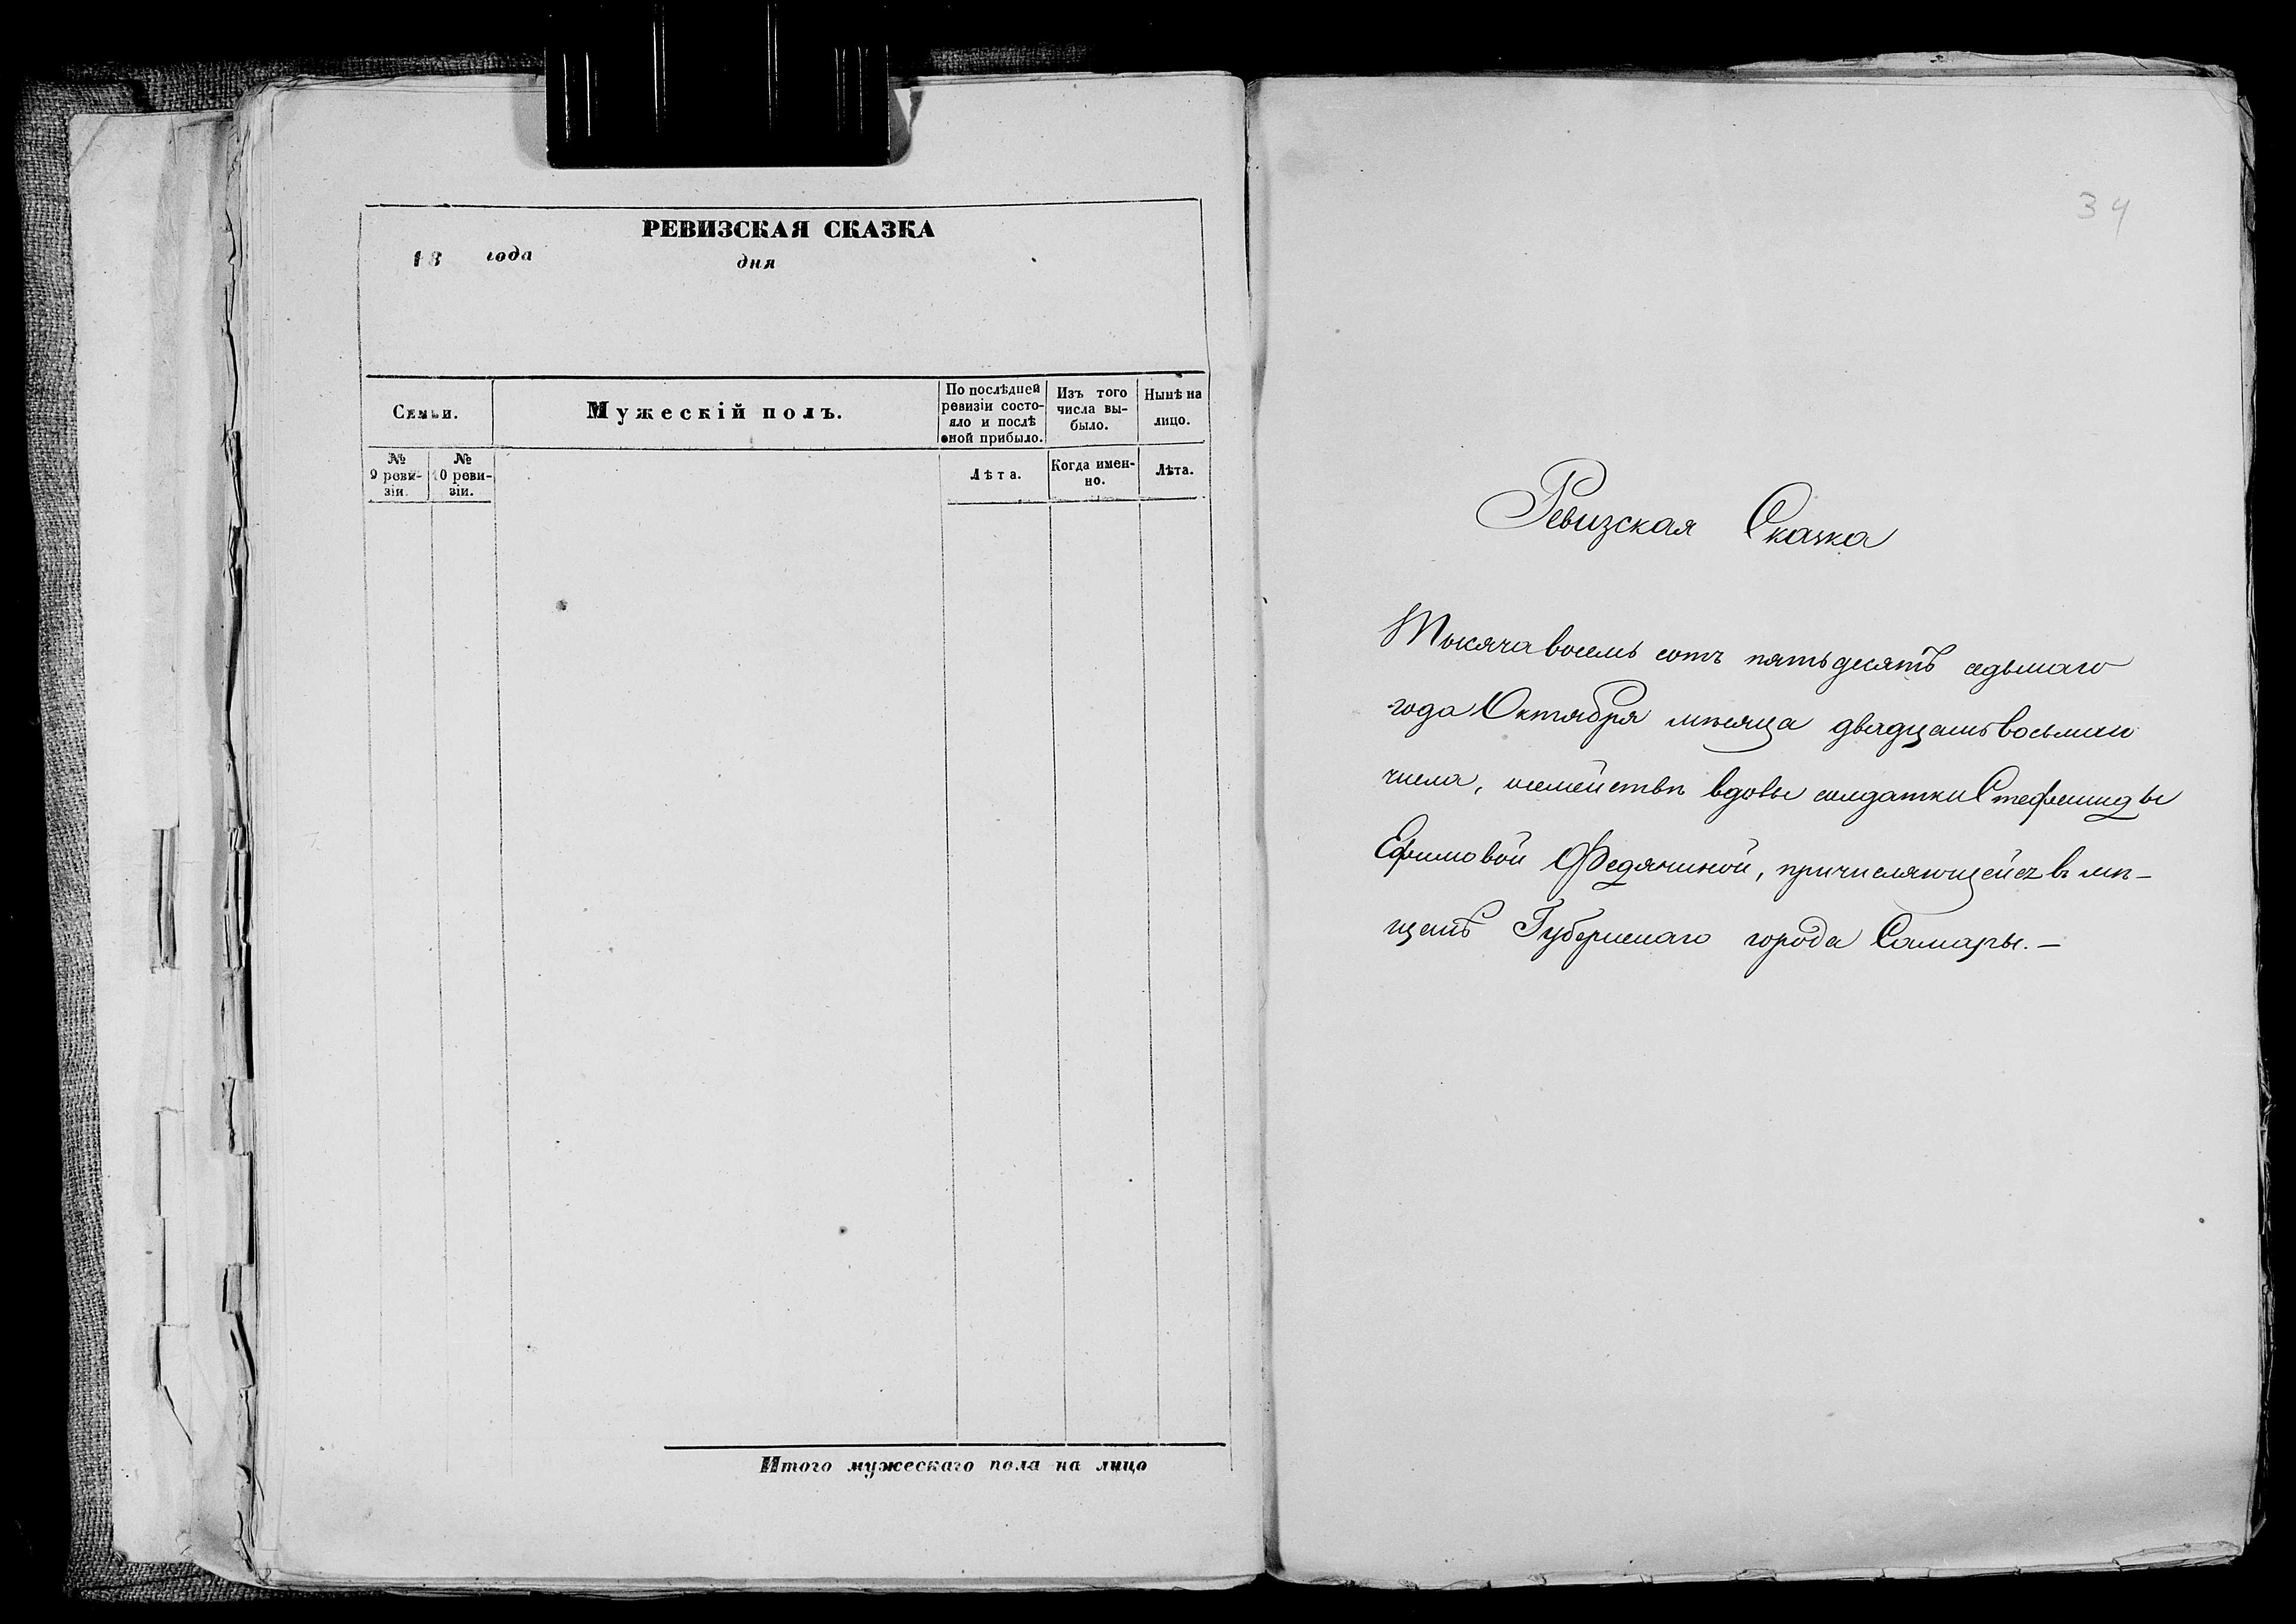 РЕВИЗСКАЯ СКАЗКА
18 года дня
Семьи.
Мужескій полъ.
По послѣдней
ревизіи состо-
яло и послѣ
оной прибыло.
Изъ того
числа вы-
было.
Нынѣ на
лицо.
№
9 реви-
зіи.
№
10 реви-
зіи.
Лѣта.
Когда имен-
но.
Лѣта.
Итого мужескаго пола на лицо
34
Ревизская Сказка
Тысяча восемь сотъ пятьдесятъ седьмаго
года Октября мѣсяца двадцать восьмаго
числа, о семействѣ вдовы солдатки Стефаниды
Ефимовой Федяниной, причисляющейся въ мѣ-
щане Губернскаго города Самары.—